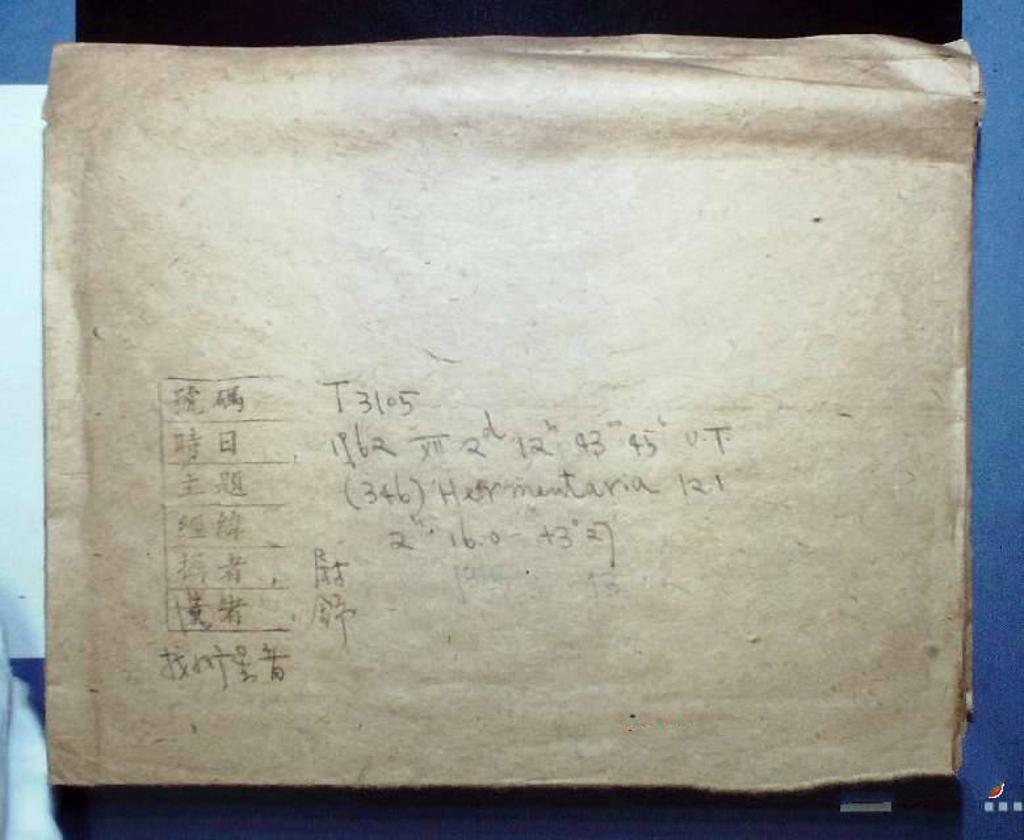 號碼 T 3105
時日 1962 XII 2d 12h 43m 45s U.T.
主題 (346) Hermentaria 12.1
經緯 2h 16.0 +3°27
攝者
讀者 舒